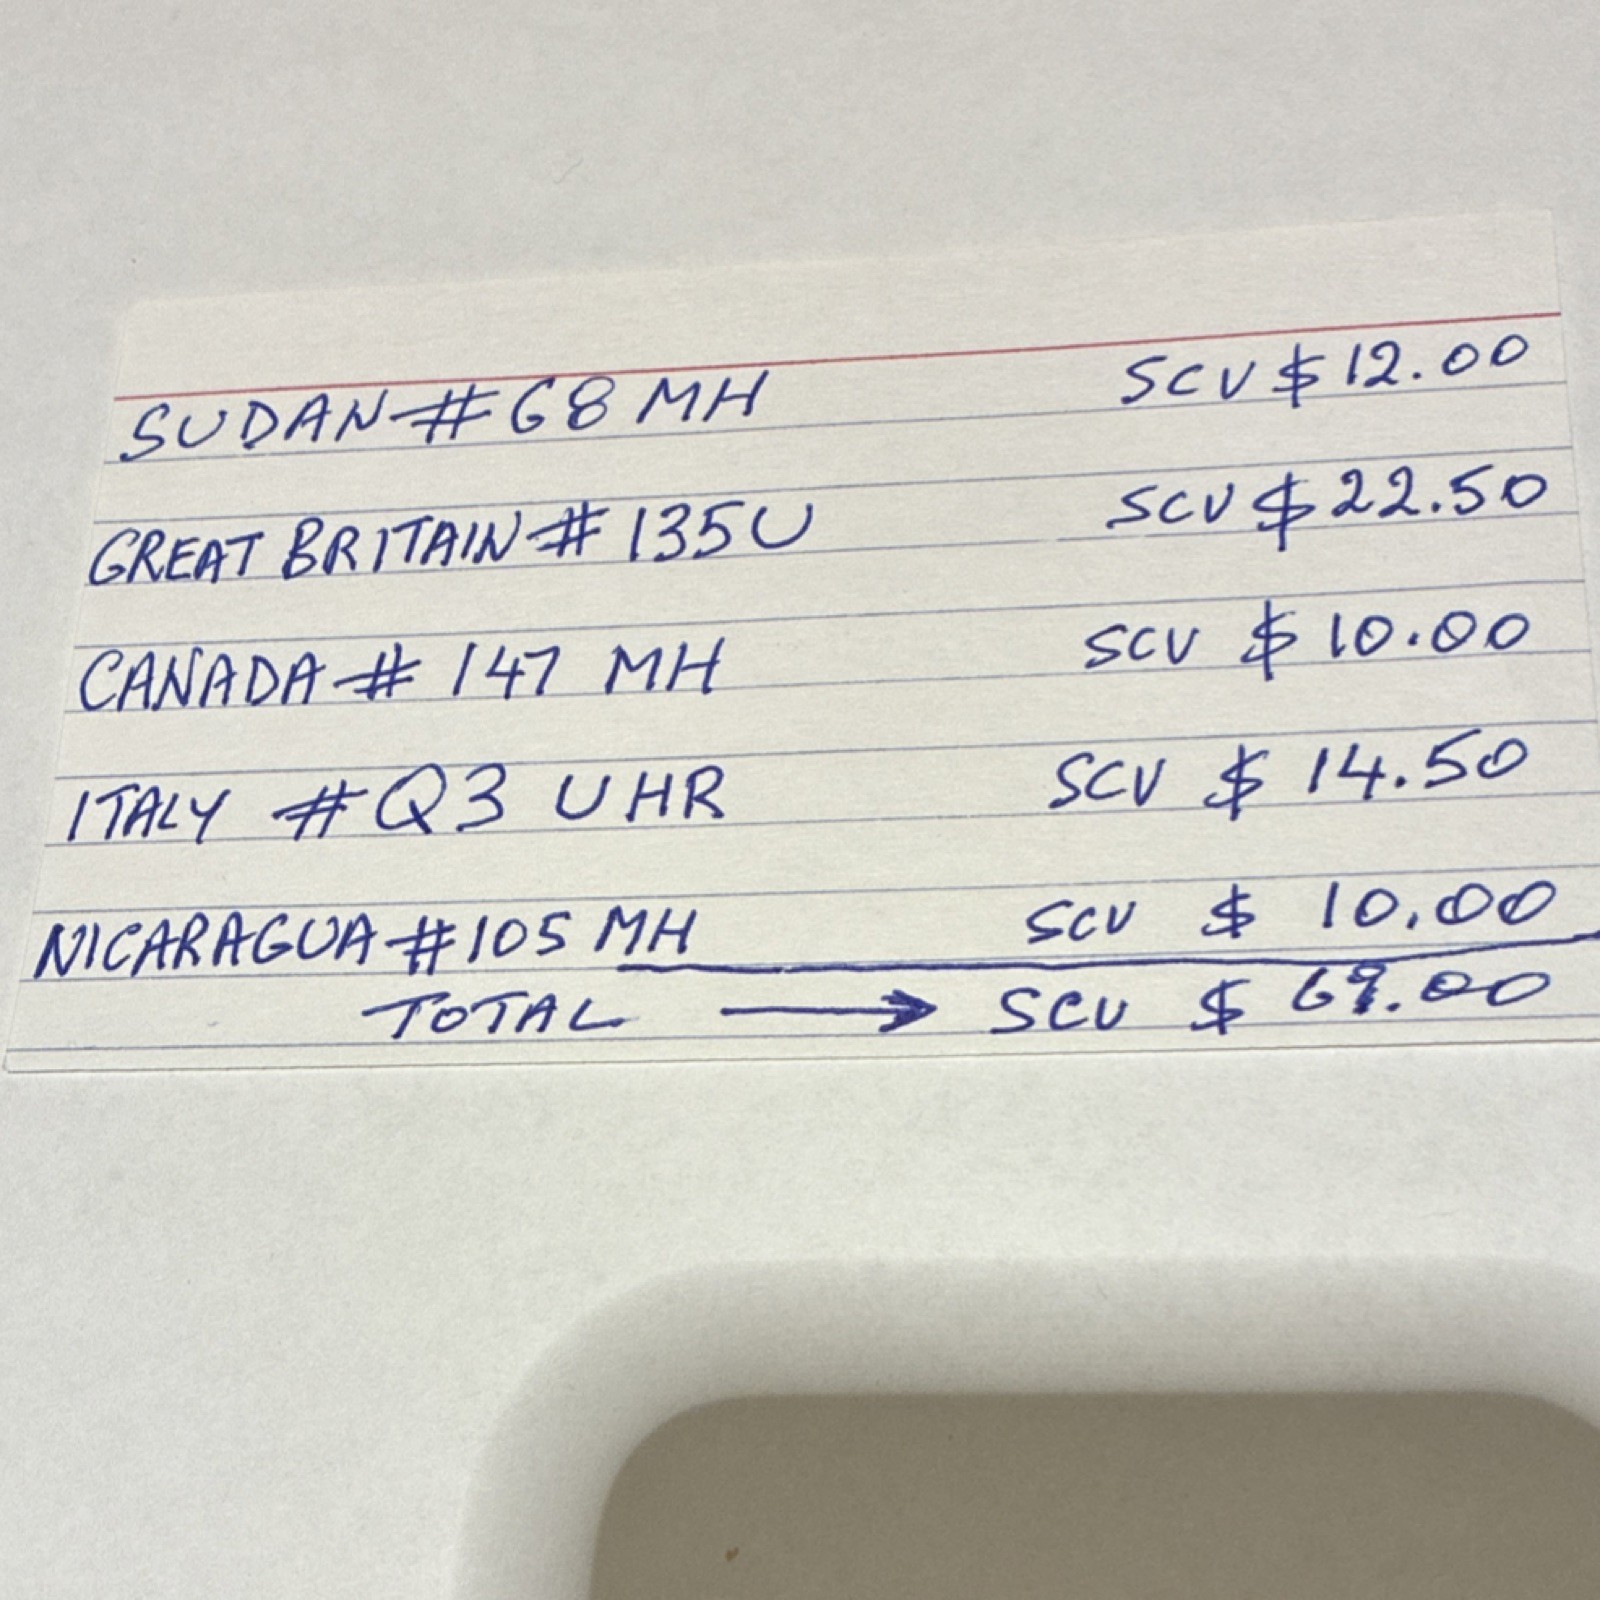 SUDAN # 68 MH SCV $ 12.00
GREAT BRITAIN # 135 U SCV $ 22.50
CANADA # 147 MH SCV $ 10.00
ITALY # Q3 UHR SCV $ 14.50
NICARAGUA # 105 MH SCV $ 10.00
TOTAL → SCV $ 69.00